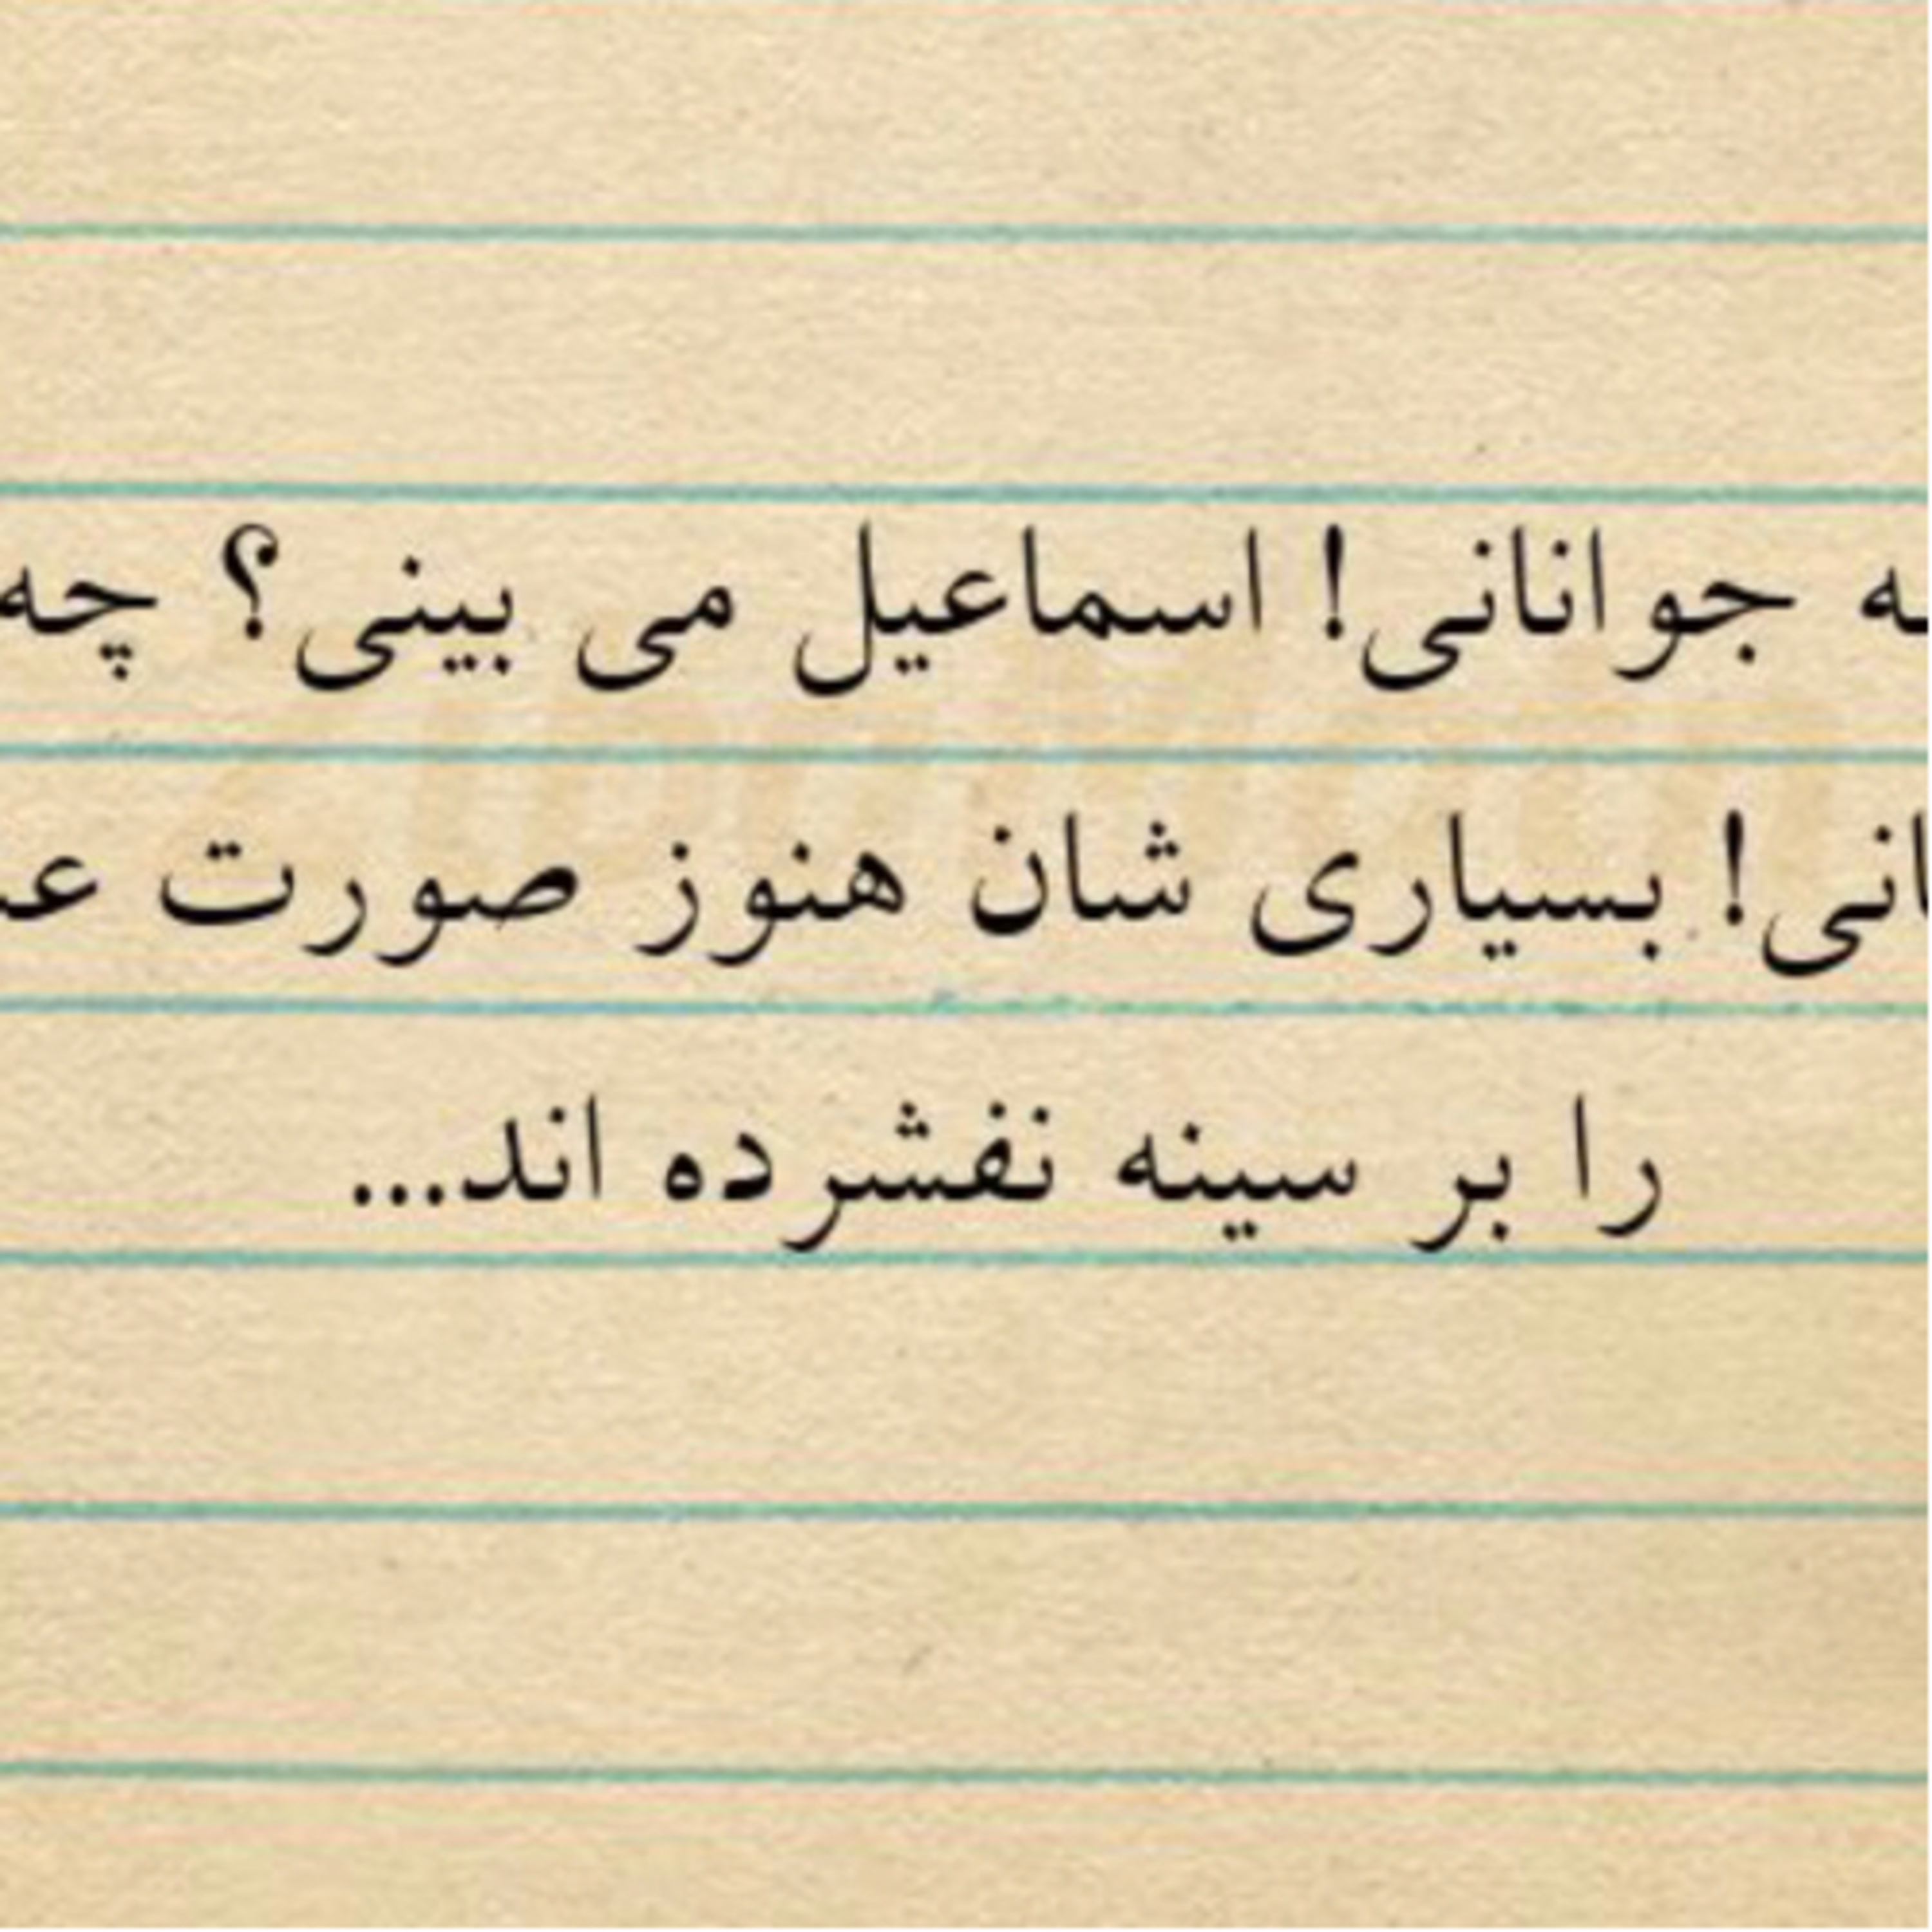 جوانانی! اسماعیل می بینی؟ چه
بسیاری شان هنوز صورت
را بر سینه نفشرده اند...